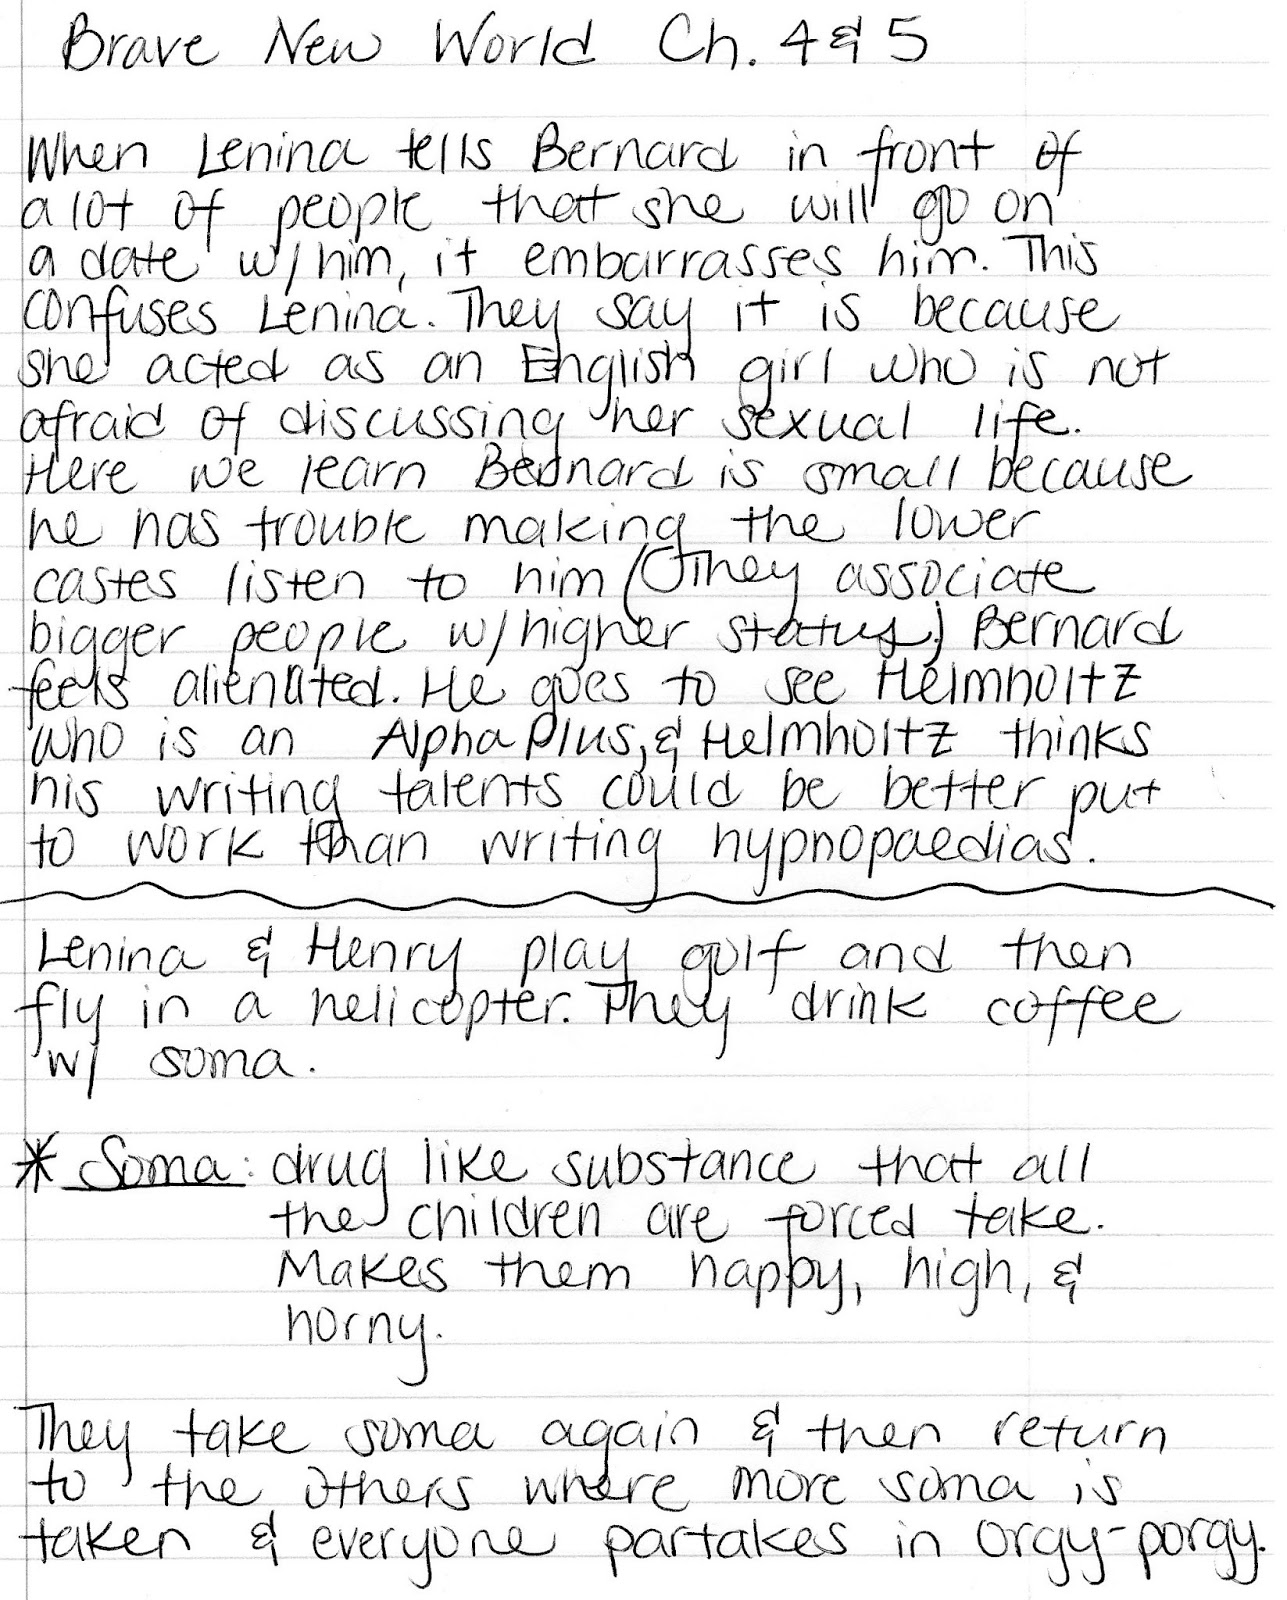 Brave New World Ch. 4 & 5
When Lenina tells Bernard in front of
a lot of people that she will go on
a date w/ him, it embarrasses him. This
confuses Lenina. They say it is because
she acted as an English girl who is not
afraid of discussing her sexual life.
Here we learn Bernard is small because
he has trouble making the lower
castes listen to him (They associate
bigger people w/ higher status) Bernard
feels alienated. He goes to see Helmholtz
who is an Alpha Plus, & Helmholtz thinks
his writing talents could be better put
to work than writing hypnopaedias.
Lenina & Henry play golf and then
fly in a helicopter. They drink coffee
w/ soma.
* Soma: drug like substance that all
the children are forced take.
Makes them happy, high, &
horny.
They take soma again & then return
to the others where more soma is
taken & everyone partakes in orgy-porgy.